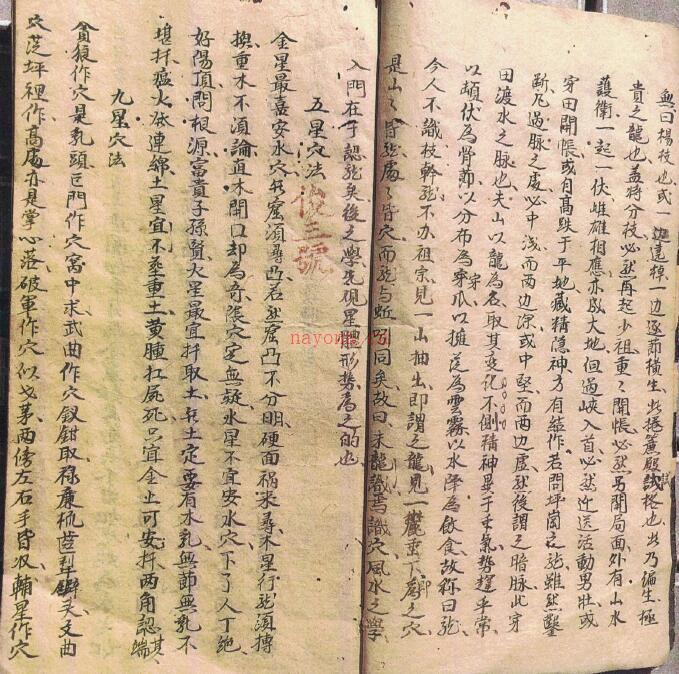 無曰楊枝也或一边遠棹一边逐節橫生此捲簾殿試格也此乃偏生極
貴之龍也盖將分枝必然再起少祖重〻開帳必然另開局面外有山水
護衛一起一伏雌雄相應亦成大地但過峽入首必然迎送活動男壯或
穿田開帳或自高跌于平地藏精隱神方有結作若問坪崗之龍雖然鑿
断凡過脉之處必中浅而两边深或中堅而两边虚然後謂之暗脉此穿
田渡水之脉也夫山以龍為名取其变化不倒精神異于来氣势趕平常
以頓伏為脊節以分布為穿爪以擁従為雲霧以水降為飲食故称曰龍
今人不識枝幹龍不办祖宗見一山抽出即謂之龍見一䯻垂下即為之穴
是山〻皆龍處〻皆穴而龍与蚯蚓同矣故曰未龍識焉識穴風水之學
入門在于認龍矣後之學先現星體形势為之的也
五星穴法
金星最喜安水穴水窟須尋凸若然窟凸不分明硬面禍来尋木星行龍須摶
換重水不須論直木開口却為奇陰穴定無疑水星不宜安水穴下了人丁絶
好陽頂問根源富貴子孫賢火星最宜扦取土水土定要有水乳無節無乳不
堪扦瘟火砍連綿土星宜不至重土黄腫扛屍死只宜金上可安扦两角認其端
九星穴法
貪狼作穴是乳頭巨門作穴窝中求武曲作穴釵鉗取禄廉梳齒犁鐴头文曲
穴芝坪裡作高處亦是掌心落破軍作穴似戈茅两傍左右手皆收輔星作穴
悅三號
nayona.cn